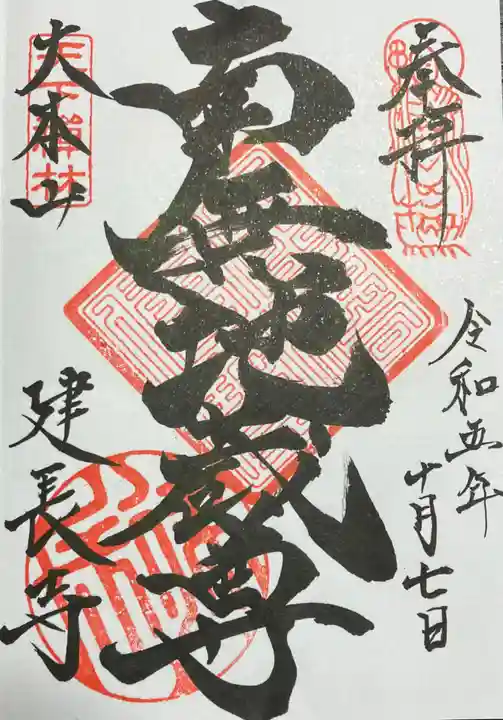 奉拝
令和五年
十月七日
南無地蔵尊
天下禅林
大本山
建長寺